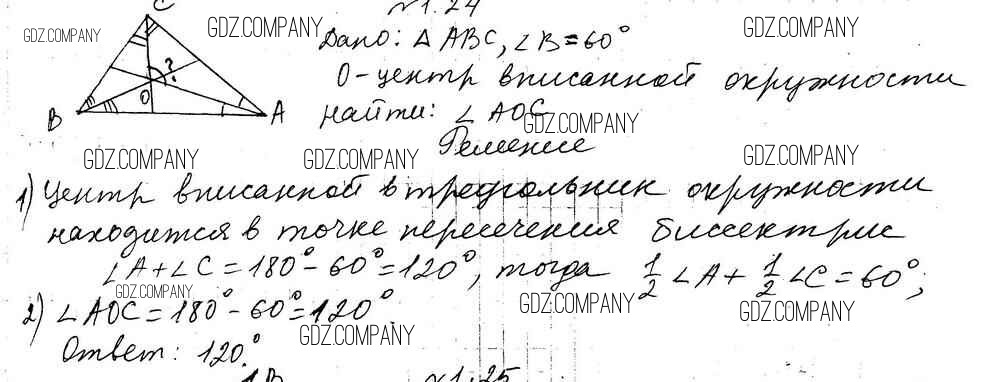 C
№1.24
GDZ.COMPANY GDZ.COMPANY GDZ.COMPANY GDZ.COMPANY
Дано: △ ABC, ∠B=60°
?
O-центр вписанной окружности
B O A
найти: ∠ AOC
GDZ.COMPANY
Решение
GDZ.COMPANY GDZ.COMPANY GDZ.COMPANY
1) Центр вписанной в треугольник окружности
находится в точке пересечения биссектрис
∠A+∠C=180°-60°=120°, тогда 1/2 ∠A+ 1/2 ∠C=60°;
GDZ.COMPANY GDZ.COMPANY GDZ.COMPANY
2) ∠AOC=180°-60°=120°
GDZ.COMPANY
Ответ: 120°.
№1.25